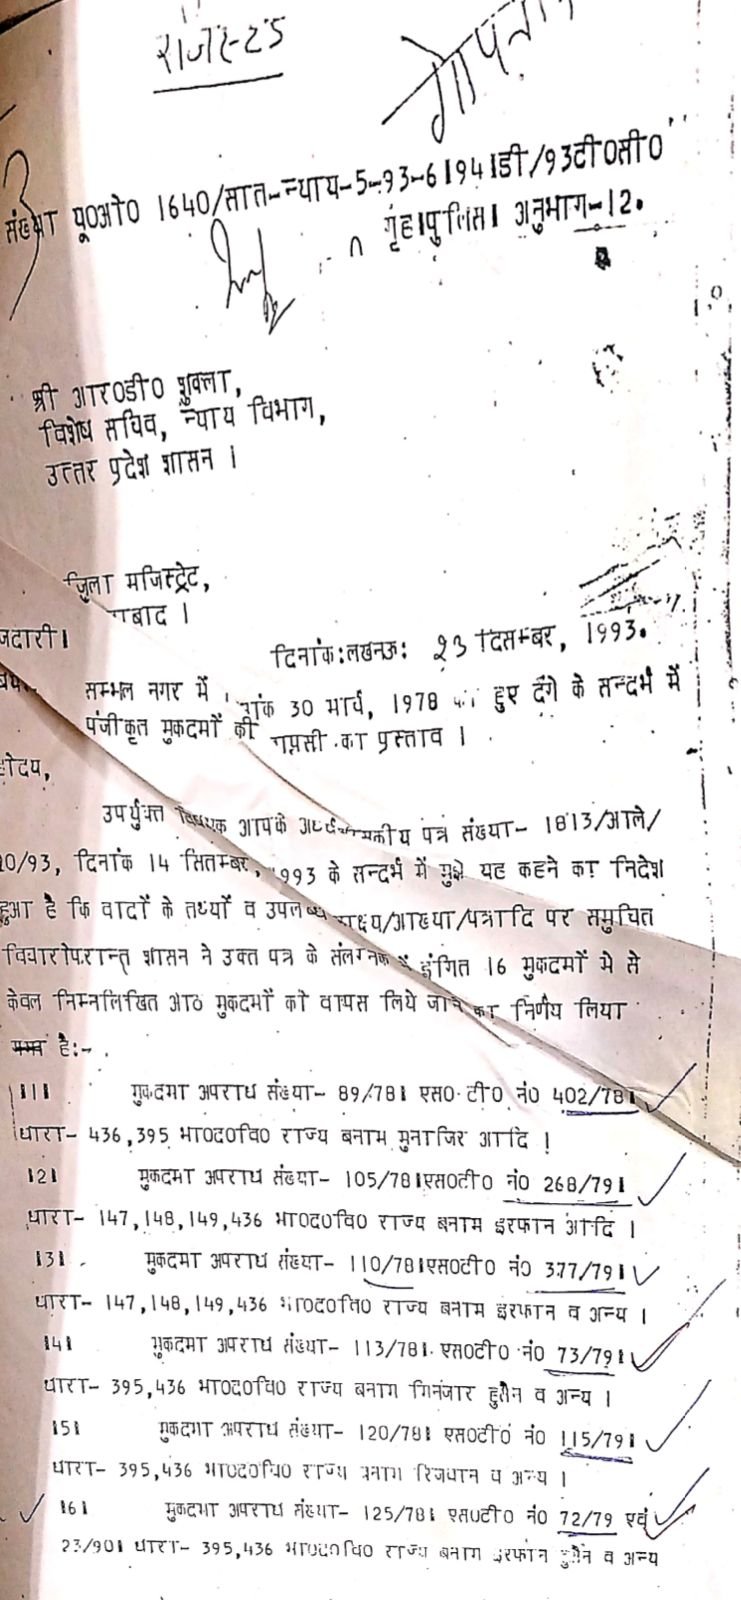 गोपनीय
संख्या यू०ओ० 1640/सात-न्याय-5-93-6।94।डी/93टी०सी०
गृह।पुलिस। अनुभाग-12.
श्री आर०डी० शुक्ला,
विशेष सचिव, न्याय विभाग,
उत्तर प्रदेश शासन ।
जिला मजिस्ट्रेट,
बाद ।
जदारी।
दिनांक:लखनऊ: 23 दिसम्बर, 1993.
सम्भल नगर में दिनांक 30 मार्च, 1978 को हुए दंगे के सन्दर्भ में
पंजीकृत मुकदमों की वापसी का प्रस्ताव ।
होदय,
उपर्युक्त विषयक आपके अर्धशासकीय पत्र संख्या- 1813/आले/
20/93, दिनांक 14 सितम्बर, 1993 के सन्दर्भ में मुझे यह कहने का निदेश
हुआ है कि वादों के तथ्यों व उपलब्ध साक्ष्य/आख्या/पत्रादि पर समुचित
विचारोपरान्त शासन ने उक्त पत्र के संलग्नक में इंगित 16 मुकदमों मे से
केवल निम्नलिखित आठ मुकदमों को वापस लिये जाने का निर्णय लिया
है:-
।1। मुकदमा अपराध संख्या- 89/78। एस०टी० नं० 402/78।
धारा- 436,395 भा०द०वि० राज्य बनाम मुनाजिर आदि ।
।2। मुकदमा अपराध संख्या- 105/78।एस०टी० नं० 268/79।
धारा- 147,148,149,436 भा०द०वि० राज्य बनाम इरफान आदि ।
।3। मुकदमा अपराध संख्या- 110/78।एस०टी० नं० 377/79।
धारा- 147,148,149,436 भा०द०वि० राज्य बनाम इरफान व अन्य ।
।4। मुकदमा अपराध संख्या- 113/78। एस०टी० नं० 73/79।
धारा- 395,436 भा०द०वि० राज्य बनाम मिनजार हुसैन व अन्य ।
।5। मुकदमा अपराध संख्या- 120/78। एस०टी० नं० 115/79।
धारा- 395,436 भा०द०वि० राज्य बनाम रिजवान व अन्य ।
।6। मुकदमा अपराध संख्या- 125/78। एस०टी० नं० 72/79 एवं
23/90। धारा- 395,436 भा०द०वि० राज्य बनाम इरफान हुसैन व अन्य